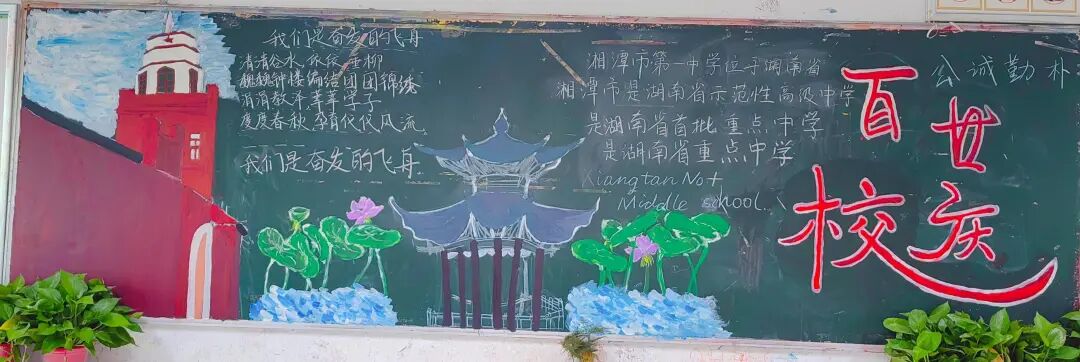 我们是奋发的飞舟
清清谷水 依依垂柳
巍巍钟楼 编结团团锦绣
涓涓教泽 莘莘学子
度度春秋 孕育代代风流
我们是奋发的飞舟
湘潭市第一中学位于湖南省
湘潭市是湖南省示范性高级中学
是湖南省首批重点中学
是湖南省重点中学
Xiangtan No1
Middle school
百世
校庆
公诚勤朴